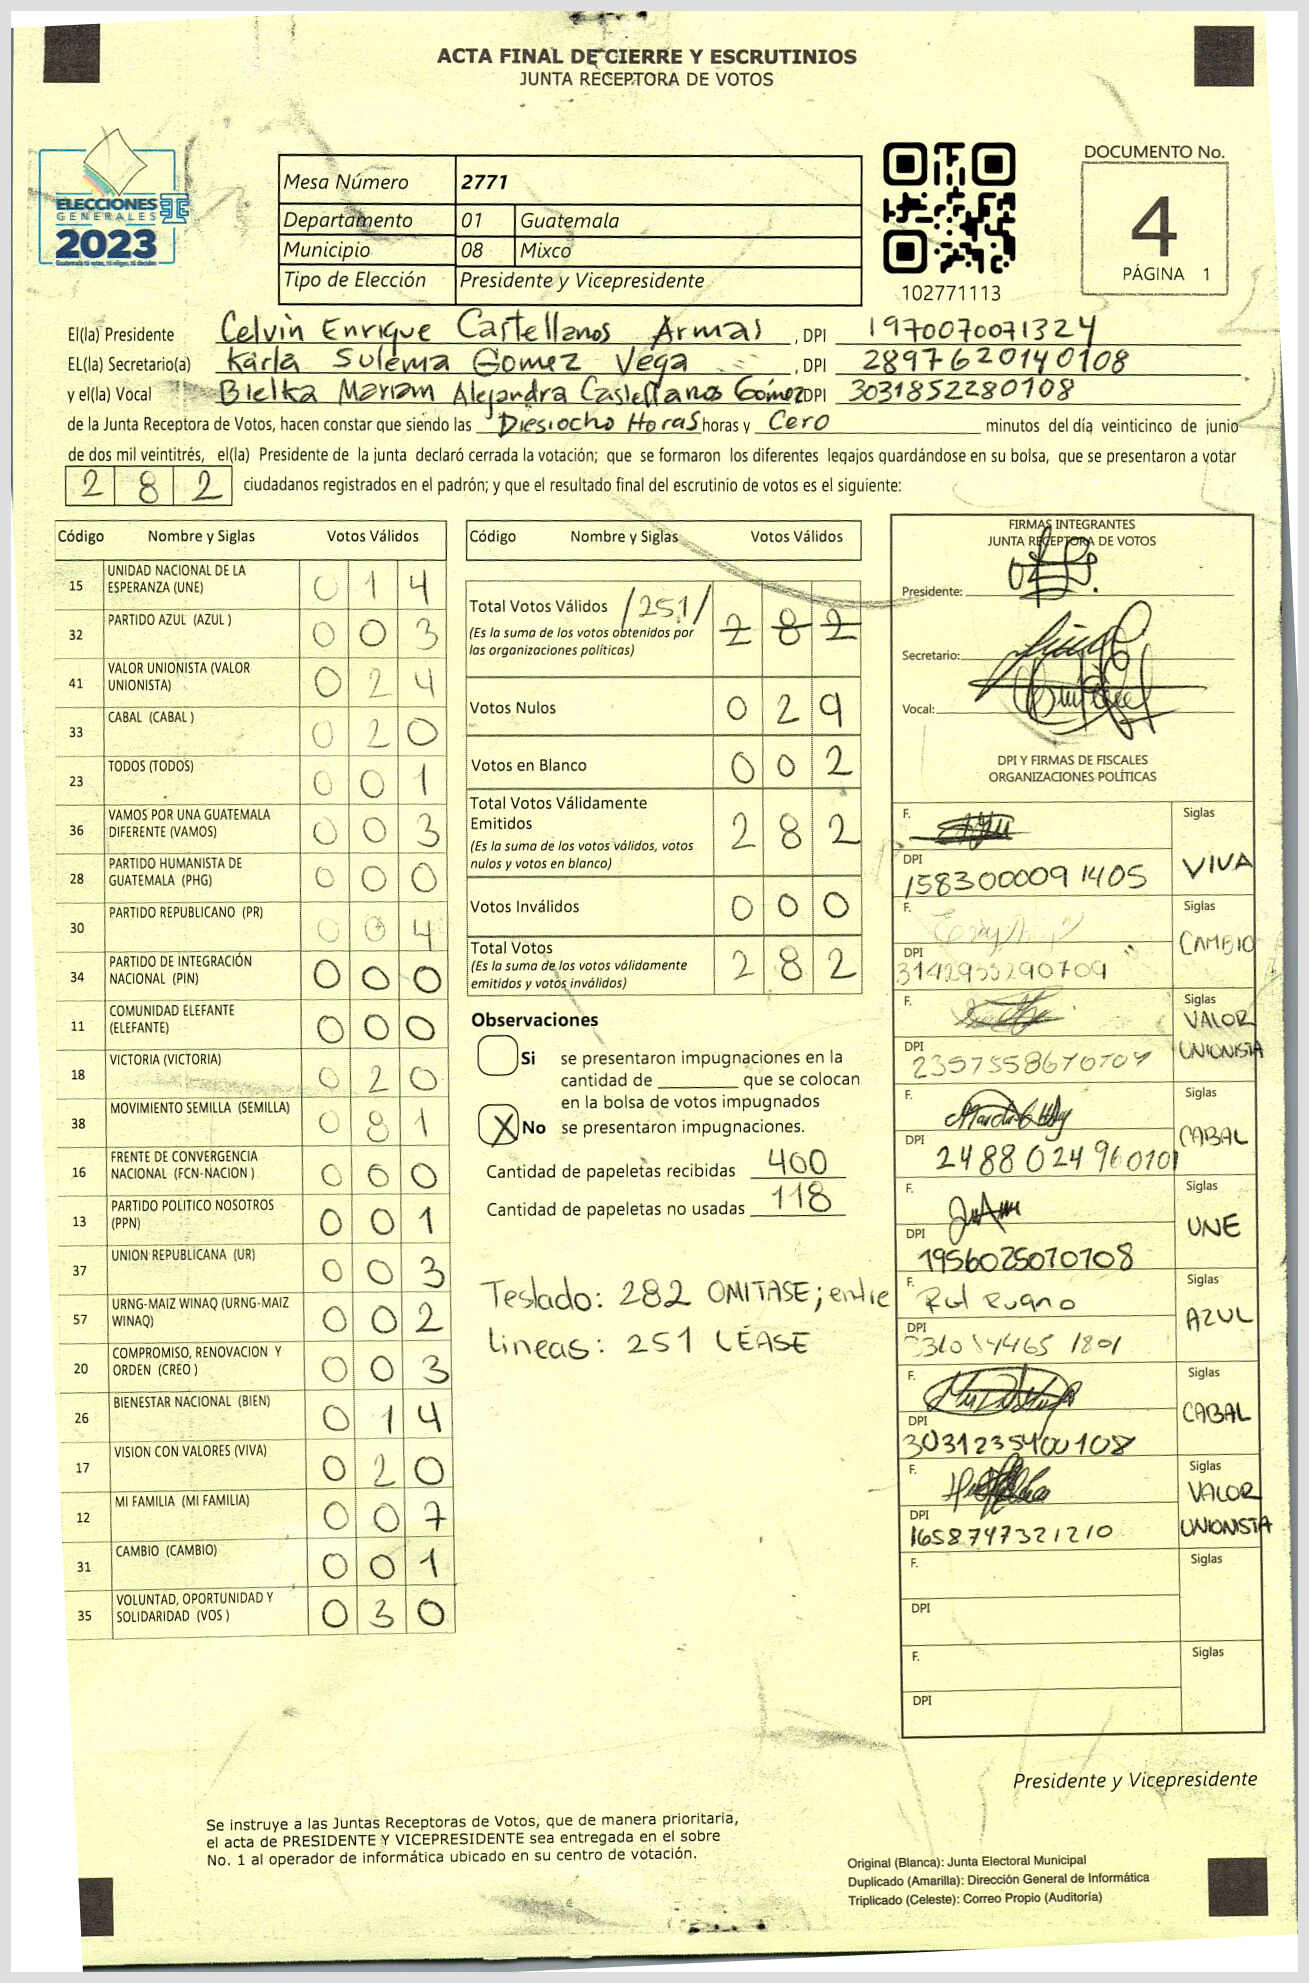 ACTA FINAL DE CIERRE Y ESCRUTINIOS
JUNTA RECEPTORA DE VOTOS
ELECCIONES
GENERALES
2023
Mesa Número 2771
Departamento 01 Guatemala
Municipio 08 Mixco
Tipo de Elección Presidente y Vicepresidente
102771113
DOCUMENTO No.
4
PÁGINA 1
El(la) Presidente Celvin Enrique Castellanos Armas , DPI 1970070071324
EL(la) Secretario(a) Karla Sulema Gomez Vega , DPI 2897620140108
y el(la) Vocal Bielka Mariam Alejandra Castellanos Gómez DPI 3031852280108
de la Junta Receptora de Votos, hacen constar que siendo las Diesiocho Horas horas y Cero minutos del día veinticinco de junio
de dos mil veintitrés, el(la) Presidente de la junta declaró cerrada la votación; que se formaron los diferentes legajos guardándose en su bolsa, que se presentaron a votar
2 8 2 ciudadanos registrados en el padrón; y que el resultado final del escrutinio de votos es el siguiente:
Código Nombre y Siglas Votos Válidos
15 UNIDAD NACIONAL DE LA ESPERANZA (UNE) 0 1 4
32 PARTIDO AZUL (AZUL ) 0 0 3
41 VALOR UNIONISTA (VALOR UNIONISTA) 0 2 4
33 CABAL (CABAL ) 0 2 0
23 TODOS (TODOS) 0 0 1
36 VAMOS POR UNA GUATEMALA DIFERENTE (VAMOS) 0 0 3
28 PARTIDO HUMANISTA DE GUATEMALA (PHG) 0 0 0
30 PARTIDO REPUBLICANO (PR) 0 0 4
34 PARTIDO DE INTEGRACIÓN NACIONAL (PIN) 0 0 0
11 COMUNIDAD ELEFANTE (ELEFANTE) 0 0 0
18 VICTORIA (VICTORIA) 0 2 0
38 MOVIMIENTO SEMILLA (SEMILLA) 0 8 1
16 FRENTE DE CONVERGENCIA NACIONAL (FCN-NACION ) 0 0 0
13 PARTIDO POLITICO NOSOTROS (PPN) 0 0 1
37 UNION REPUBLICANA (UR) 0 0 3
57 URNG-MAIZ WINAQ (URNG-MAIZ WINAQ) 0 0 2
20 COMPROMISO, RENOVACION Y ORDEN (CREO ) 0 0 3
26 BIENESTAR NACIONAL (BIEN) 0 1 4
17 VISION CON VALORES (VIVA) 0 2 0
12 MI FAMILIA (MI FAMILIA) 0 0 7
31 CAMBIO (CAMBIO) 0 0 1
35 VOLUNTAD, OPORTUNIDAD Y SOLIDARIDAD (VOS ) 0 3 0
Código Nombre y Siglas Votos Válidos
Total Votos Válidos /251/ 2 8 2
(Es la suma de los votos obtenidos por
las organizaciones políticas)
Votos Nulos 0 2 9
Votos en Blanco 0 0 2
Total Votos Válidamente
Emitidos 2 8 2
(Es la suma de los votos válidos, votos
nulos y votos en blanco)
Votos Inválidos 0 0 0
Total Votos 2 8 2
(Es la suma de los votos válidamente
emitidos y votos inválidos)
Observaciones
Si se presentaron impugnaciones en la
cantidad de ________ que se colocan
en la bolsa de votos impugnados
X No se presentaron impugnaciones.
Cantidad de papeletas recibidas 400
Cantidad de papeletas no usadas 118
Testado: 282 OMITASE; entre
lineas: 251 LÉASE
FIRMAS INTEGRANTES
JUNTA RECEPTORA DE VOTOS
Presidente:
Secretario:
Vocal:
DPI Y FIRMAS DE FISCALES
ORGANIZACIONES POLÍTICAS
F. Siglas
DPI 1583000091405 VIVA
F. Siglas
DPI CAMBIO
F. Siglas
DPI VALOR UNIONISTA
F. Siglas
DPI 2488024960101 CABAL
F. Siglas
DPI 1956025070708 UNE
F. Siglas
DPI AZUL
F. Siglas
DPI 3031235400108 CABAL
F. Siglas
DPI 1658747321210 VALOR UNIONISTA
F. Siglas
DPI
F. Siglas
DPI
Presidente y Vicepresidente
Se instruye a las Juntas Receptoras de Votos, que de manera prioritaria,
el acta de PRESIDENTE Y VICEPRESIDENTE sea entregada en el sobre
No. 1 al operador de informática ubicado en su centro de votación.
Original (Blanca): Junta Electoral Municipal
Duplicado (Amarilla): Dirección General de Informática
Triplicado (Celeste): Correo Propio (Auditoría)